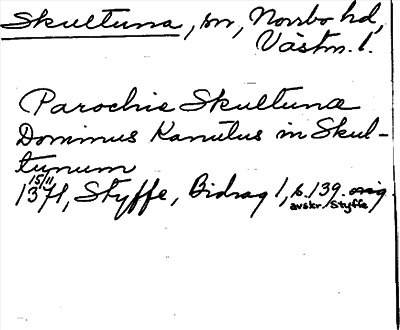 Skultuna, sn, Norrbo hd,
Västm. l.
Parochie Skultuna
Dominus Kanutus in Skul-
tunum
15/11
1371, Styffe, Bidrag 1, s. 139. orig.
avskr. Styffe